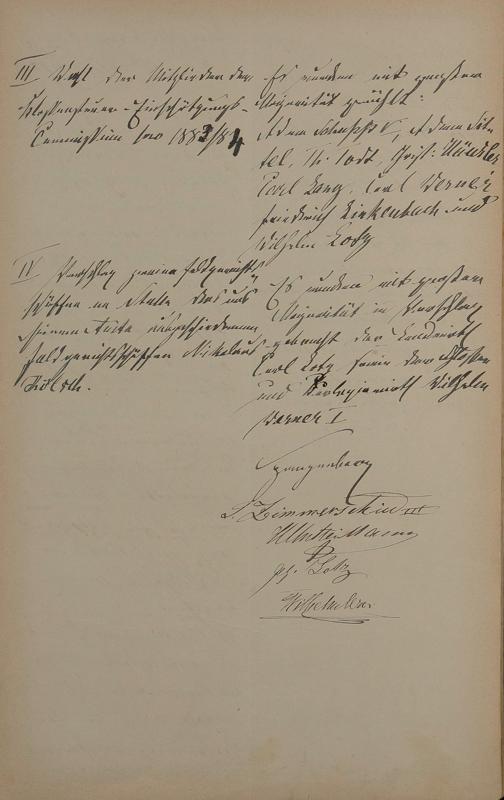 III Wahl der Mitglieder der
Klassensteuer-Einschätzungs-
Commission pro 1883/84
Es wurden mit großer
Majorität gewählt:
Adam Schupp V, Adam Sit-
tel, Th. Todt, Christ: Künkler
Carl Lang, Carl Werner
Friedrich Birkenbach und
Wilhelm Lotz
IV Vorschlag zweier Feldgerichts
schöffen an Stelle des aus
dieser Liste ausgeschiedenen
Feldgerichtsschöffen Nikolaus
Es wurden mit großer
Majorität in Vorschlag
gebracht der Landwirth
Carl Lotz
und Wilhelm
Werner I
Spangenberg
Zimmerschied III
Ph. Lotz
Wilhelm